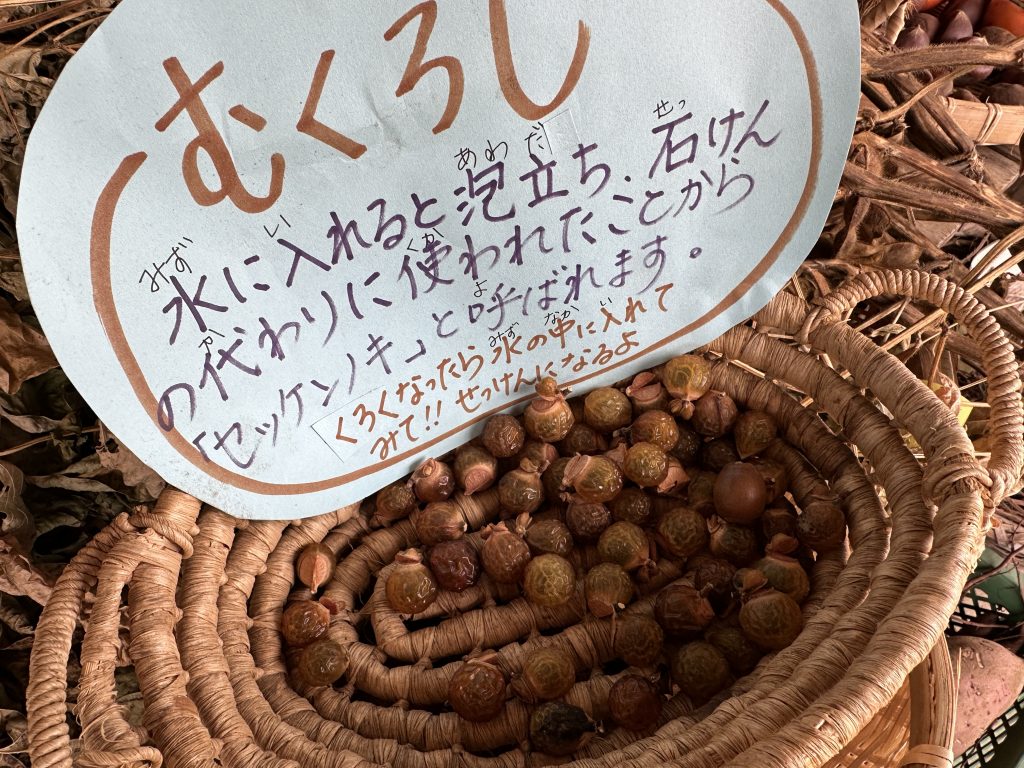 むくろじ
水に入れると泡立ち、石けん
の代わりに使われたことから
「セッケンノキ」と呼ばれます。
くろくなったら水の中に入れて
みて!! せっけんになるよ